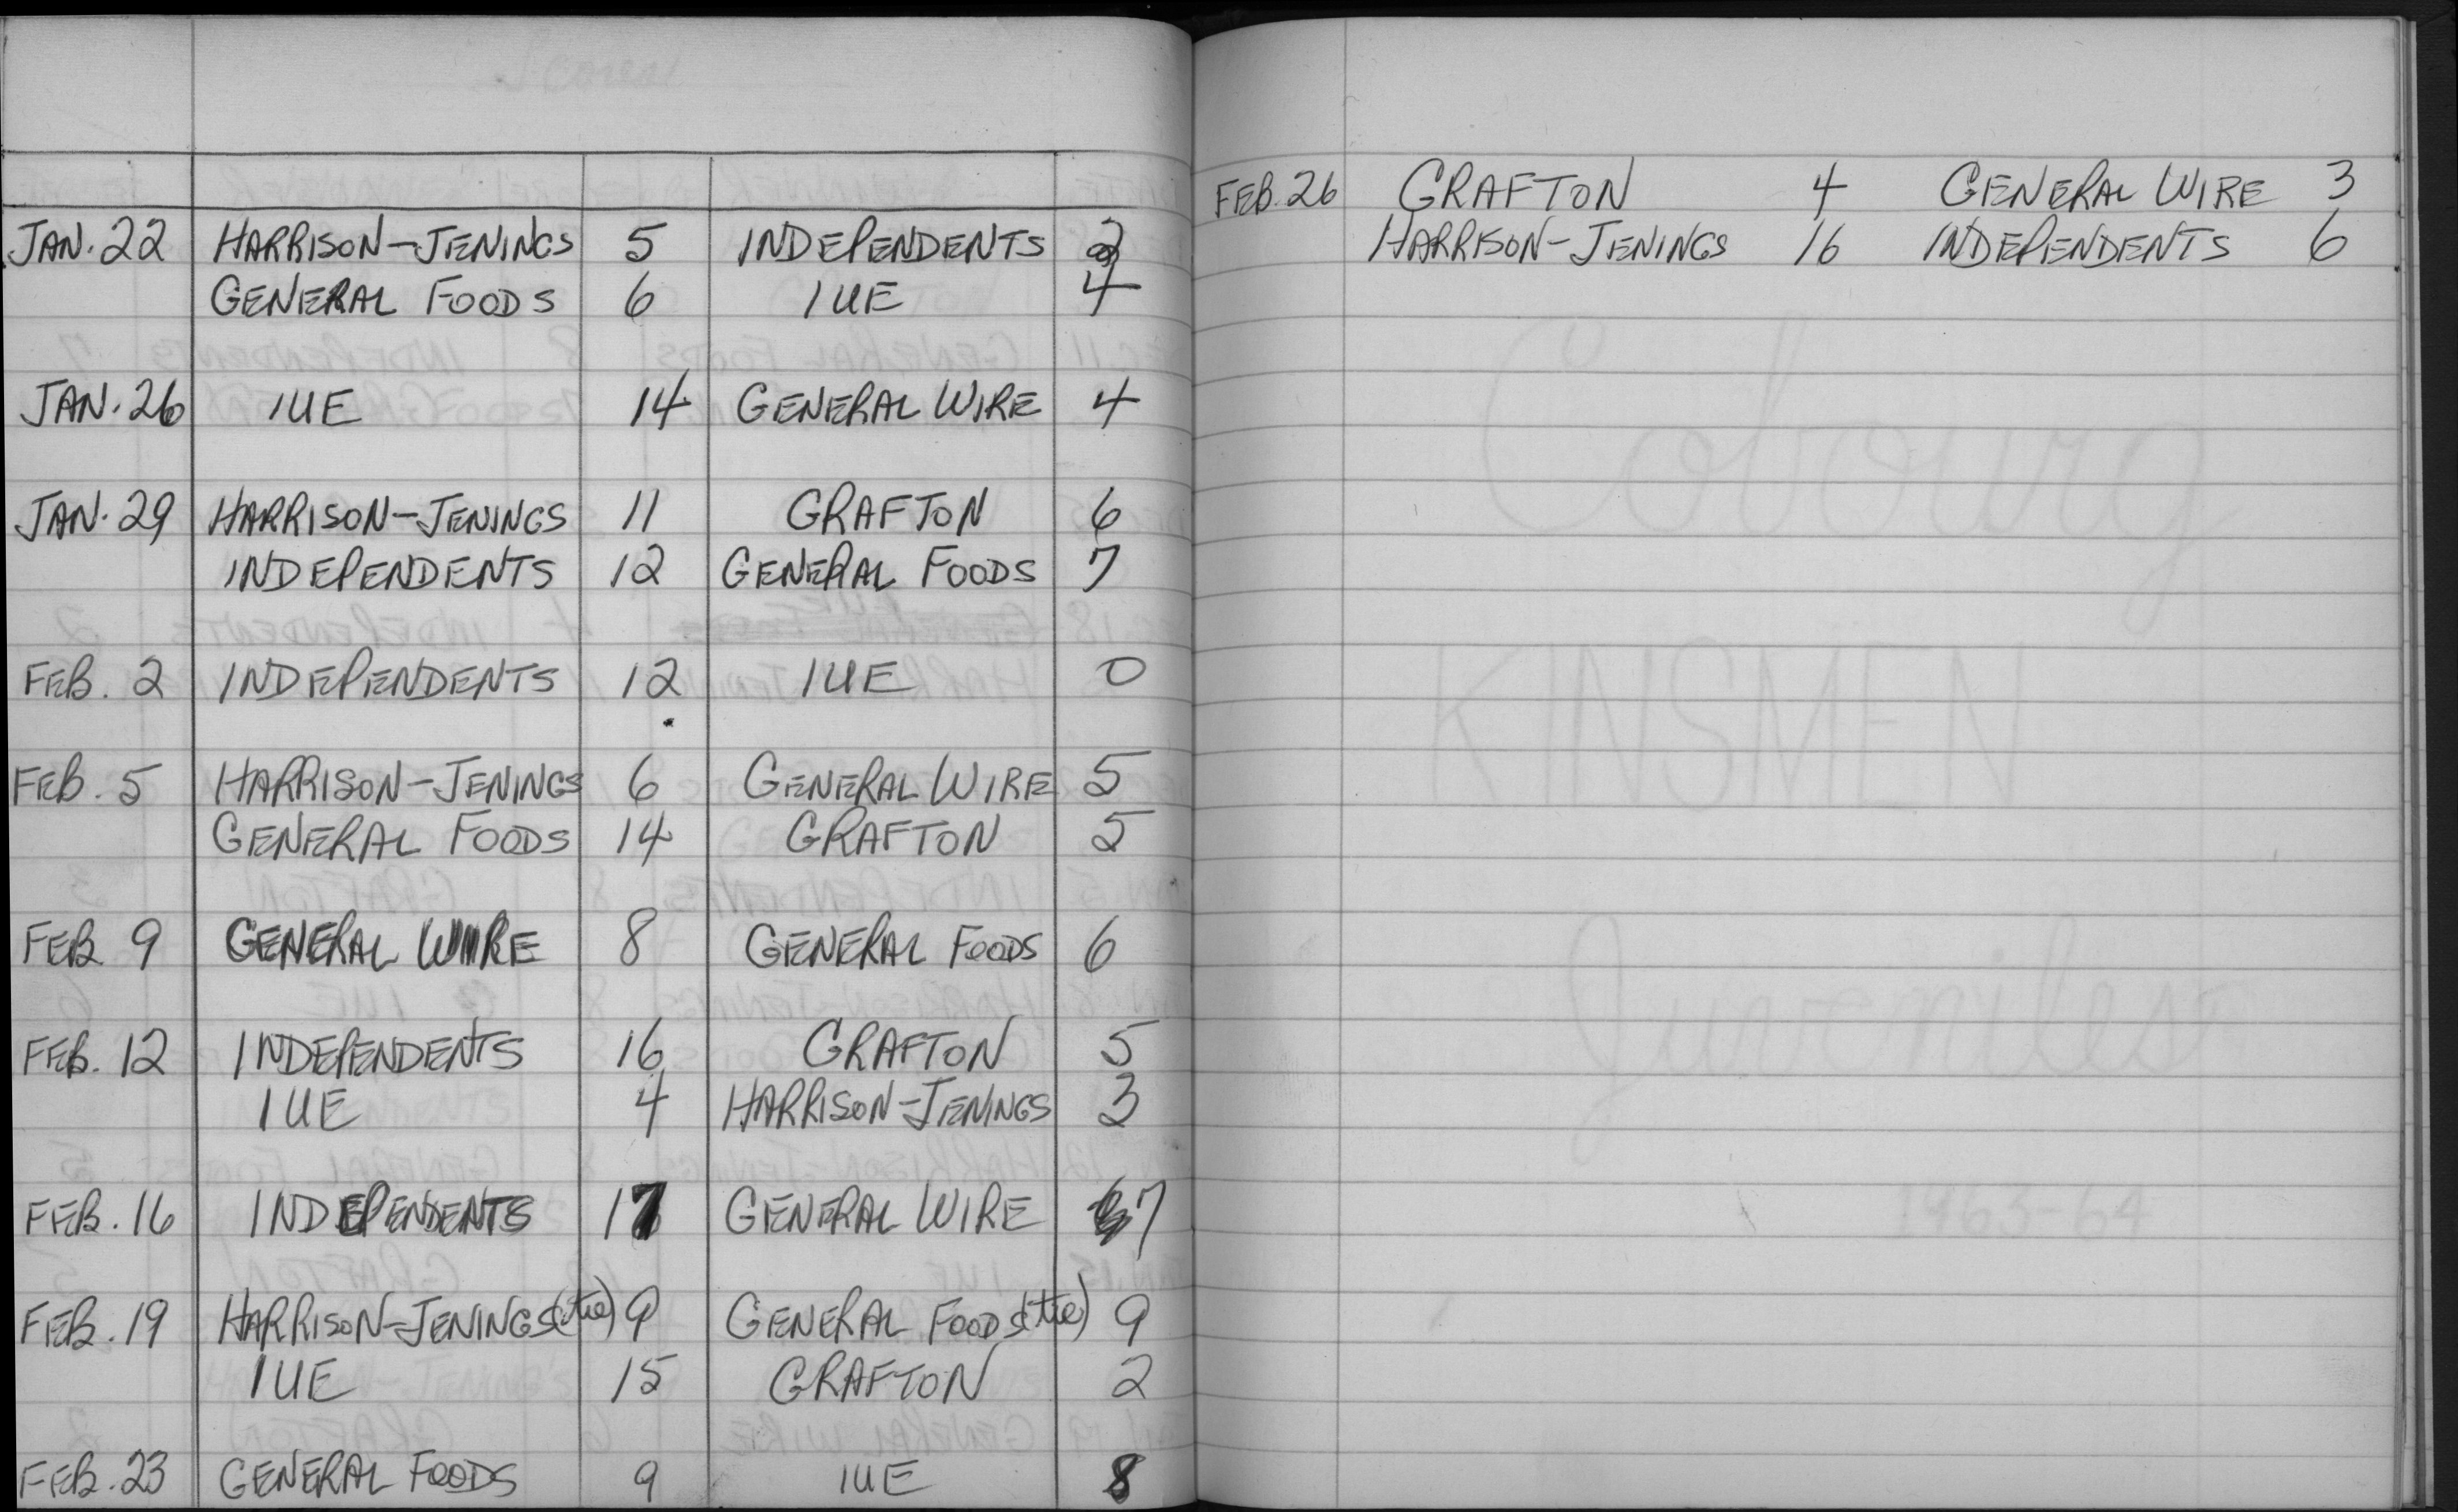 Scores
JAN. 22 HARRISON-JENINGS 5 INDEPENDENTS 2
GENERAL FOODS 6 IUE 4
JAN. 26 IUE 14 GENERAL WIRE 4
JAN. 29 HARRISON-JENINGS 11 GRAFTON 6
INDEPENDENTS 12 GENERAL FOODS 7
FEB. 2 INDEPENDENTS 12 IUE 0
FEB. 5 HARRISON-JENINGS 6 GENERAL WIRE 5
GENERAL FOODS 14 GRAFTON 5
FEB. 9 GENERAL WIRE 8 GENERAL FOODS 6
FEB. 12 INDEPENDENTS 16 GRAFTON 5
IUE 4 HARRISON-JENINGS 3
FEB. 16 INDEPENDENTS 17 GENERAL WIRE 7
FEB. 19 HARRISON-JENINGS (tie) 9 GENERAL FOODS (tie) 9
IUE 15 GRAFTON 2
FEB. 23 GENERAL FOODS 9 IUE 8
FEB. 26 GRAFTON 4 GENERAL WIRE 3
HARRISON-JENINGS 16 INDEPENDENTS 6
Cobourg
KINSMEN
Juveniles
1963-64